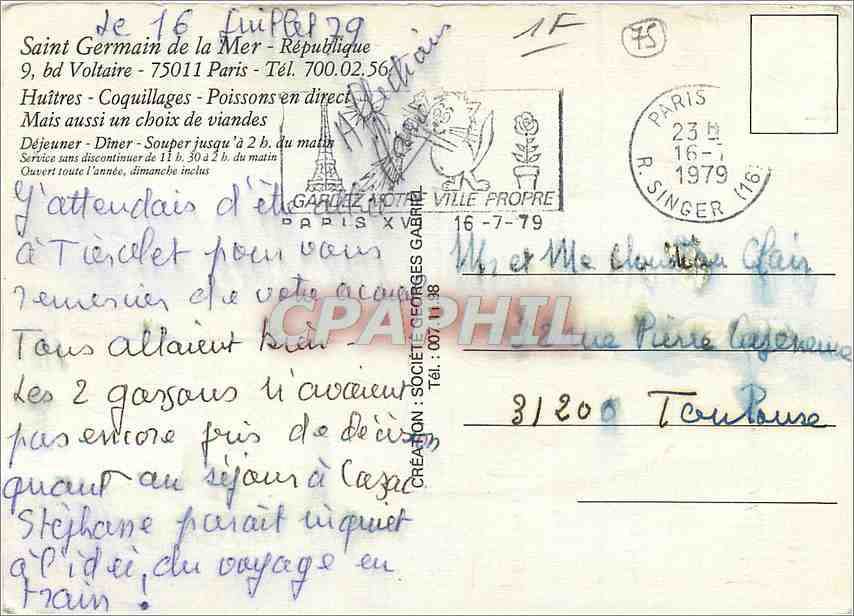 Le 16 Juillet 79
Saint Germain de la Mer - République
9, bd Voltaire - 75011 Paris - Tél. 700.02.56
Huîtres - Coquillages - Poissons en direct
Mais aussi un choix de viandes
Déjeuner - Dîner - Souper jusqu'à 2 h. du matin
Service sans discontinuer de 11 h. 30 à 2 h. du matin
Ouvert toute l'année, dimanche inclus
J'attendais d'être
à pour vous
remercier de votre
Tous allaient bien -
Les 2 gassons n'avaient
pas encore pris de décision
quant au séjour à Cazac
Stéphane parait inquiet
à l'idée du voyage en
train !
1F
75
GARDEZ VOTRE VILLE PROPRE
PARIS XVI 16-7-79
PARIS
23 H
16-7
1979
R. SINGER (16)
CRÉATION : SOCIÉTÉ GEORGES GABRIEL
Tél. : 007.11.98
Mr et Me Christian Clair
rue Pierre Cazeneuve
31200 Toulouse
CPAPHIL